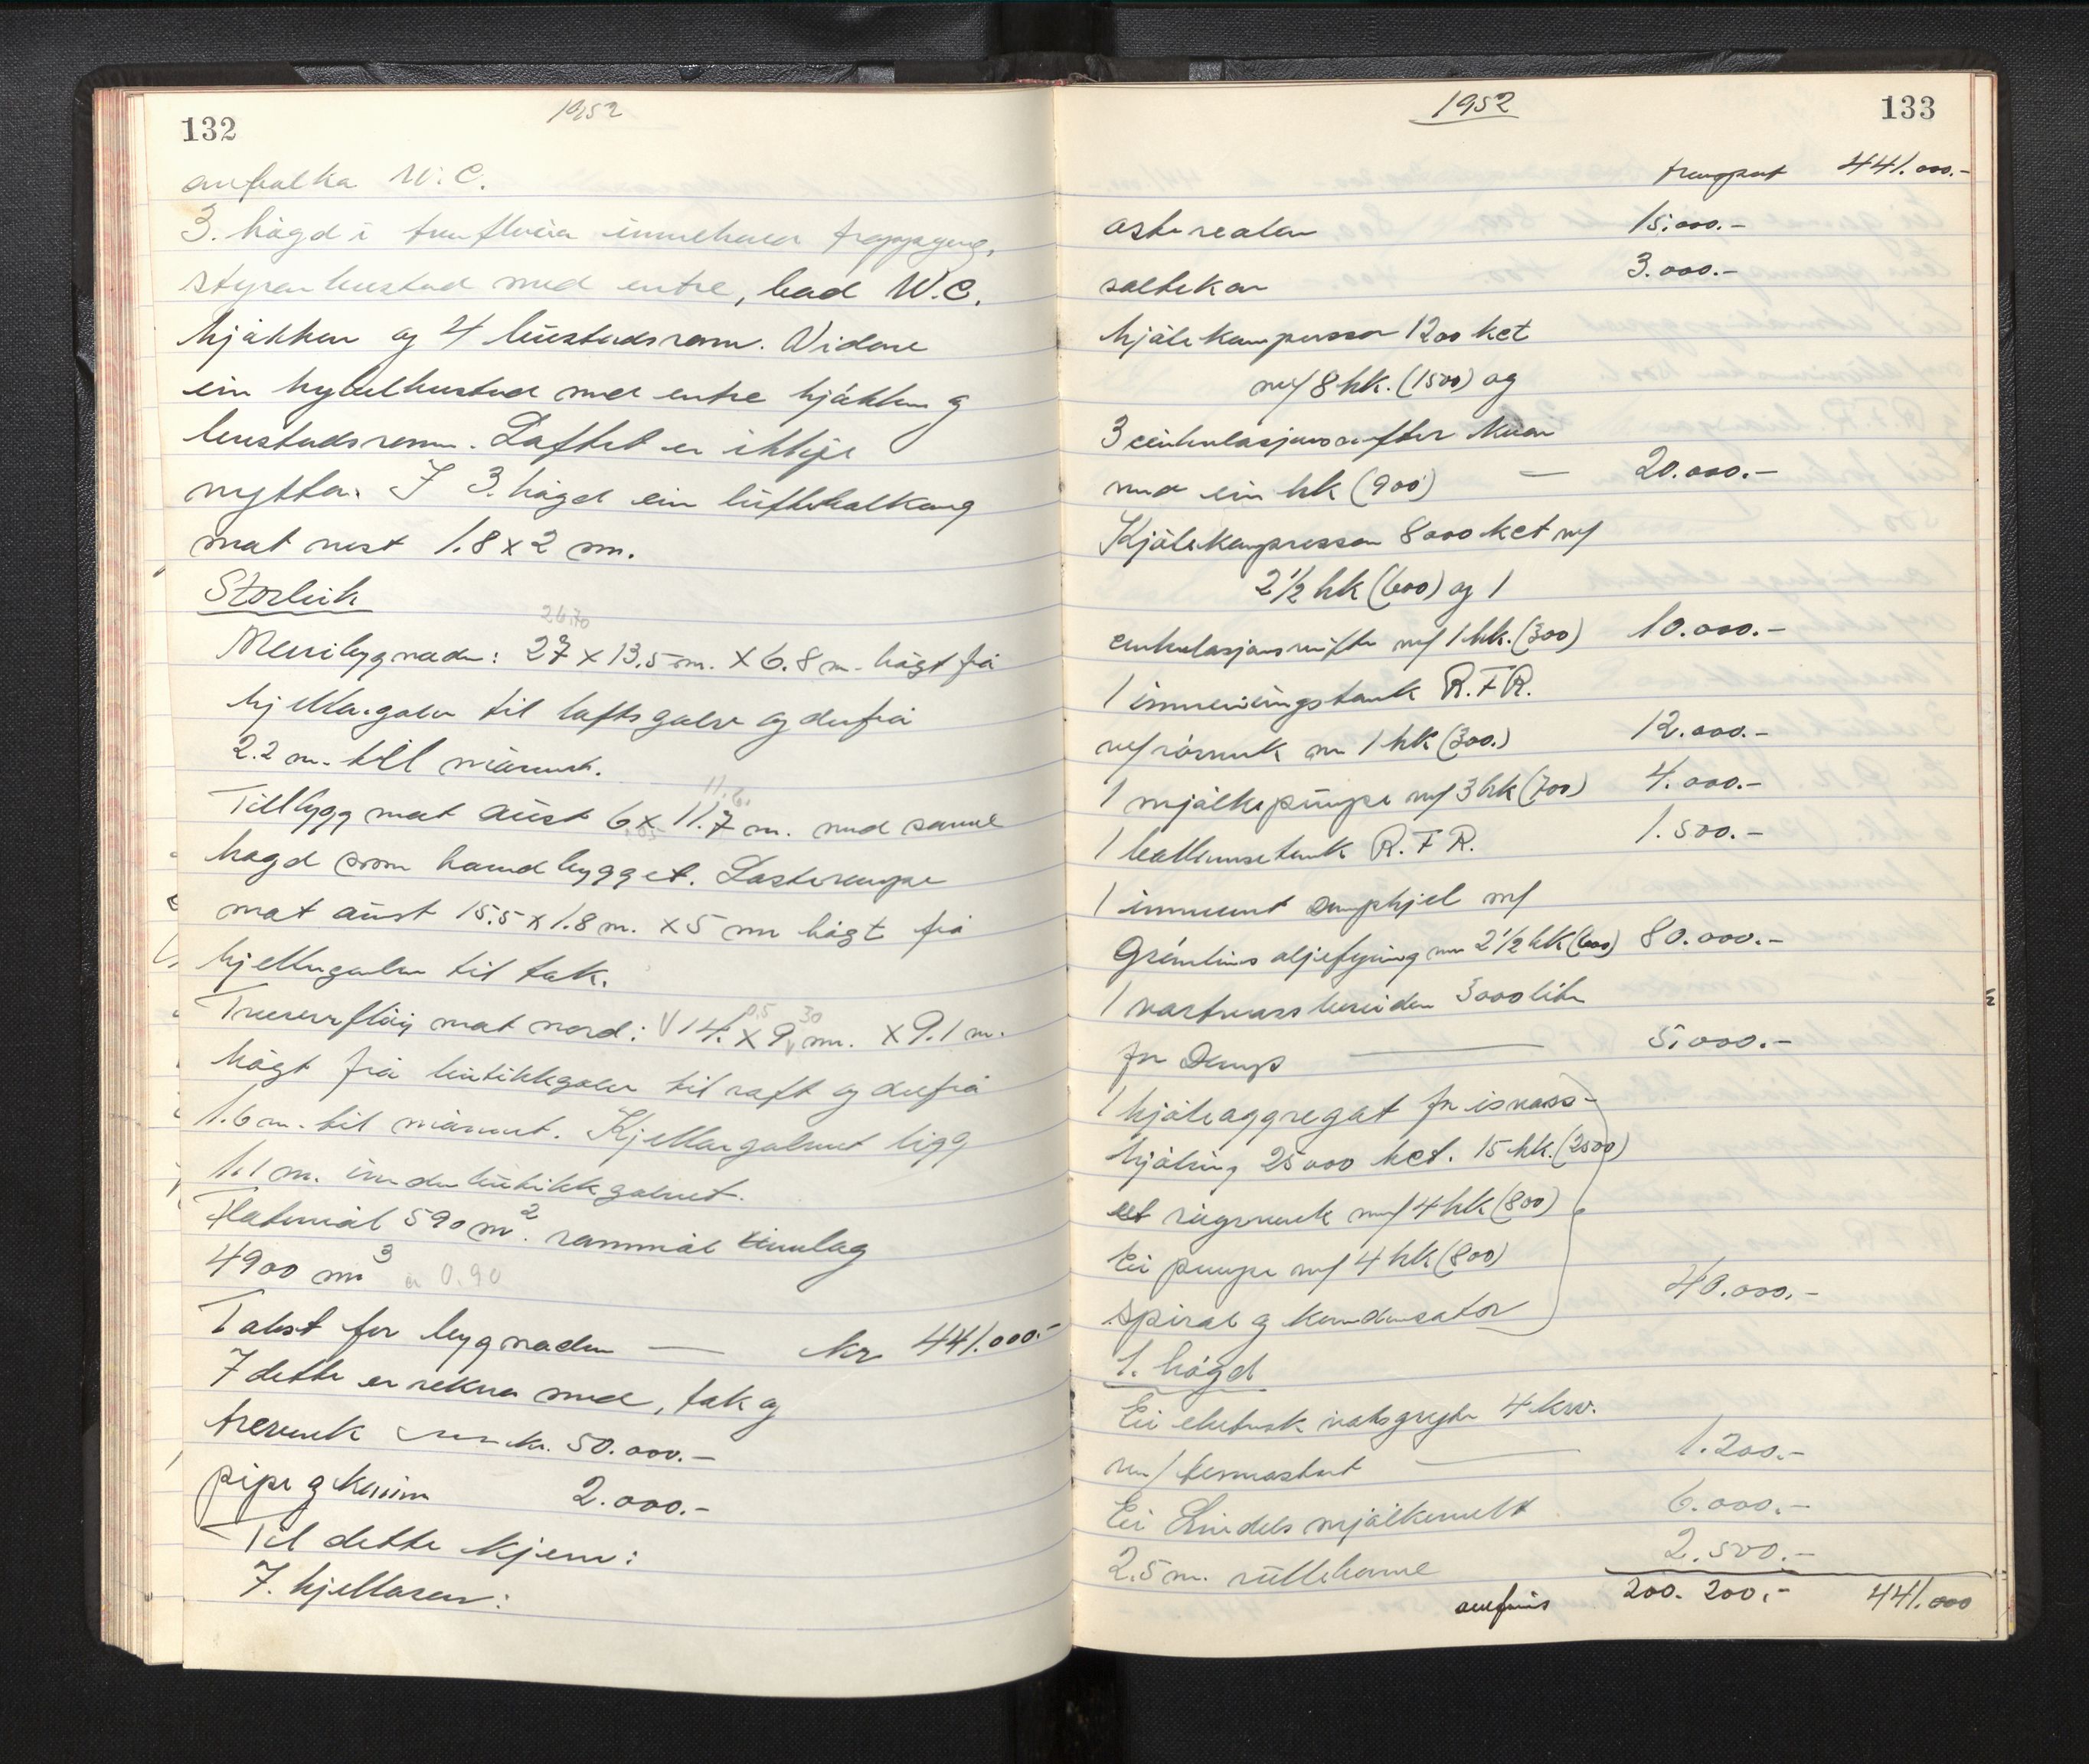 132
1952
W.C.
3. høgd i inneheld trappegang,
styrarbustad med entre, bad W.C.
kjøkken og 4 bustadsrom. Vidare
ein hybelbustad med entre kjøkken og
bustadsrom. Loftet er ikkje
nytta. I 3. høgd ein luftebalkong
mot vest 1.8 x 2 m.
Storleik
26.70
Meieribygnaden: 27 x 13.5 m. x 6.8 m. høgt frå
kjellargolv til loftsgolv og derfrå
2.2 m. til mønet.
11.6.
Tilbygg mot aust 6 x 11.7 m. med same
høgd som hovudbygget. Lasterampe
mot aust 15.5 x 1.8 m. x 5 m høgt frå
kjellargolv til tak.
0,5 30
Tverrfløy mot nord: 14. x 9 m. x 9.1 m.
høgt frå butikkgolv til raft og derfrå
1.6 m. til mønet. Kjellargolvet ligg
1.1 m. under butikkgolvet.
Flatemål 590 m². rommål
4900 m³ a 0.90
Takst for bygnaden — kr 441.000.-
I dette er rekna med, tak og
treverk kr. 50.000.-
pipe og 2.000.-
Til dette kjem:
I. kjellaren:
1952
133
transport 441.000.-
15.000.-
saltekar 3.000.-
kjølekompressor 1200 kct
m/ 8 hk. (1500) og
3 sirkulasjonsvifter
med ein hk (900) — 20.000.-
Kjølekompressor 8000 kct m/
2½ hk (600) og 1
sirkulasjonsvifte m/ 1 hk. (300) 10.000.-
1 tank R.F.R.
m/ rørverk m 1 hk (300.) 12.000.-
1 mjølkepumpe m/ 3 hk (700) 4.000.-
1 tank R.F.R. 1.500.-
1 innmurt dampkjel m/
oljefyring m 2½ hk (600) 80.000.-
1 varmvassbereidar 3000 liter
for damp — 5.000.-
1 kjøleaggregat for isvass-
kjøling 25000 kct. 15 hk. (2500)
eit røreverk m/ 4 hk (800)
Ei pumpe m/ 4 hk (800)
spiral og kondensator 40.000.-
1. høgd
Ei elektrisk 4 kw.
m/ termostat — 1.200.-
Ei mjølkevekt 6.000.-
2.5 m. rullebane 2.500.-
overføres 200.200,- 441.000